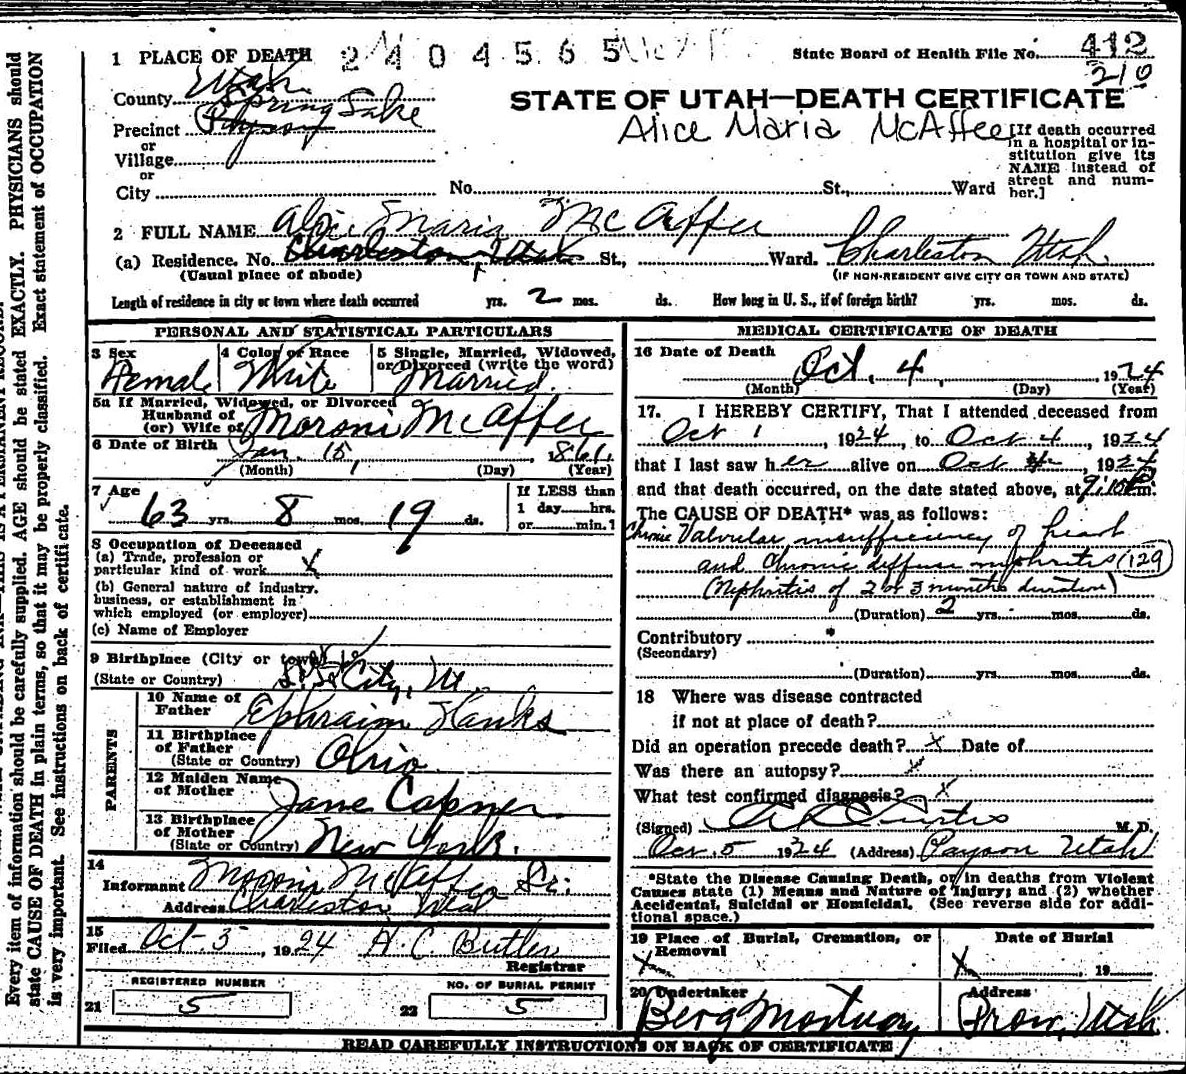 1 PLACE OF DEATH 2404565 State Board of Health File No. 412
210
County Utah
STATE OF UTAH—DEATH CERTIFICATE
Spring Lake
Precinct Payson
Alice Maria McAffee
[If death occurred in a hospital or institution give its NAME instead of street and number.]
or
Village
or
City No. St., Ward
2 FULL NAME Alice Maria McAffee
(a) Residence. No. Charleston, Utah St., Ward. Charleston Utah
(Usual place of abode) (IF NON-RESIDENT GIVE CITY OR TOWN AND STATE)
Length of residence in city or town where death occurred yrs. 2 mos. ds. How long in U. S., if of foreign birth? yrs. mos. ds.
PERSONAL AND STATISTICAL PARTICULARS
3 Sex 4 Color or Race 5 Single, Married, Widowed, or Divorced (write the word)
Female White Married.
5a If Married, Widowed, or Divorced
Husband of
(or) Wife of Moroni McAffee
6 Date of Birth Jan. 15, 1861.
(Month) (Day) (Year)
7 Age If LESS than
63 yrs. 8 mos. 19 ds. 1 day hrs.
or min.1
8 Occupation of Deceased
(a) Trade, profession or
particular kind of work X
(b) General nature of industry,
business, or establishment in
which employed (or employer)
(c) Name of Employer
9 Birthplace (City or town)
(State or Country) S. L. City, Ut.
PARENTS
10 Name of Father Ephraim Hanks
11 Birthplace of Father
(State or Country) Ohio
12 Maiden Name of Mother Jane Capner
13 Birthplace of Mother
(State or Country) New York.
14
Informant Moroni McAffee Sr.
Address Charleston Utah
15
Filed Oct 5, 1924 H C Butler
Registrar
REGISTERED NUMBER NO. OF BURIAL PERMIT
21 5 22 5
MEDICAL CERTIFICATE OF DEATH
16 Date of Death
Oct. 4, 1924
(Month) (Day) (Year)
17. I HEREBY CERTIFY, That I attended deceased from
Oct 1, 1924, to Oct 4, 1924
that I last saw her alive on Oct 4, 1924
and that death occurred, on the date stated above, at 9:10 P.m.
The CAUSE OF DEATH* was as follows:
Chronic Valvular insufficiency of heart
and Chronic diffuse nephritis (129)
(Nephritis of 2 or 3 months duration)
(Duration) 2 yrs. mos. ds.
Contributory
(Secondary)
(Duration) yrs. mos. ds.
18 Where was disease contracted
if not at place of death?
Did an operation precede death? X Date of
Was there an autopsy? X
What test confirmed diagnosis? X
(Signed) Curtis M. D.
Oct. 5 1924 (Address) Payson Utah
*State the Disease Causing Death, or in deaths from Violent
Causes state (1) Means and Nature of Injury; and (2) whether
Accidental, Suicidal or Homicidal. (See reverse side for addi-
tional space.)
19 Place of Burial, Cremation, or Removal Date of Burial
X X , 19
20 Undertaker Address
Berg Mortuary Provo, Utah
READ CAREFULLY INSTRUCTIONS ON BACK OF CERTIFICATE
Every item of information should be carefully supplied. AGE should be stated EXACTLY. PHYSICIANS should
state CAUSE OF DEATH in plain terms, so that it may be properly classified. Exact statement of OCCUPATION
is very important. See instructions on back of certificate.